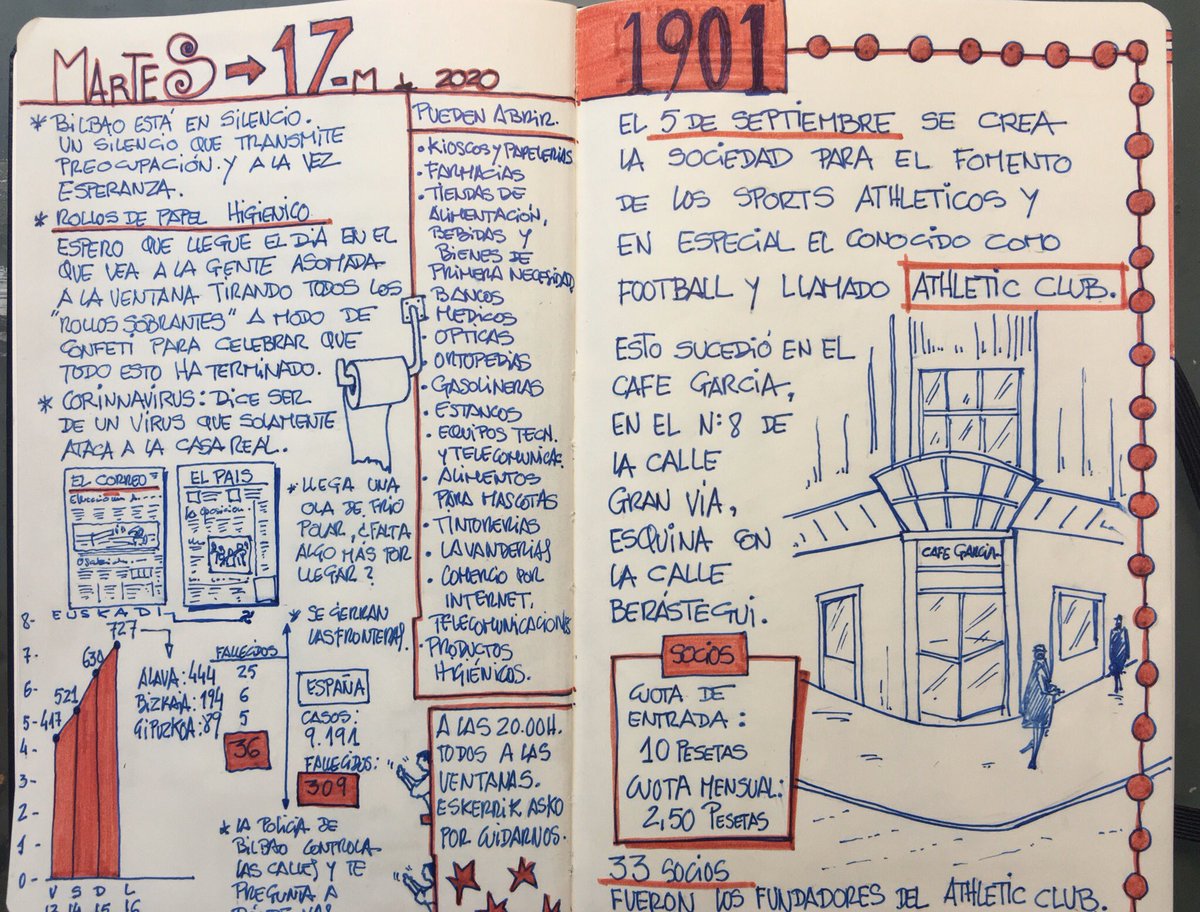 MARTES → 17-M 2020
* BILBAO ESTÁ EN SILENCIO.
UN SILENCIO QUE TRANSMITE
PREOCUPACIÓN. Y A LA VEZ
ESPERANZA.
* ROLLOS DE PAPEL HIGIENICO
ESPERO QUE LLEGUE EL DIA EN EL
QUE VEA A LA GENTE ASOMADA
A LA VENTANA TIRANDO TODOS LOS
"ROLLOS SOBRANTES" A MODO DE
CONFETI PARA CELEBRAR QUE
TODO ESTO HA TERMINADO.
* CORINNAVIRUS: DICE SER
DE UN VIRUS QUE SOLAMENTE
ATACA A LA CASA REAL.
EL CORREO
EL PAIS
la oposicion
* LLEGA UNA
OLA DE FRIO
POLAR, ¿FALTA
ALGO MÁS POR
LLEGAR?
* SE CIERRAN
LAS FRONTERAS.
EUSKADI
8-
7-
6-
5-
4-
3-
2-
1-
0-
417
521
630
727
V S D L
13 14 15 16
ALAVA: 444
BIZKAIA: 194
GIPUZKOA: 89
FALLECIDOS
25
6
5
36
ESPAÑA
CASOS:
9.191
FALLECIDOS:
309
* LA POLICIA DE
BILBAO CONTROLA
LAS CALLES Y TE
PREGUNTA A
PUEDEN ABRIR.
• KIOSCOS Y PAPELERIAS
• FARMACIAS
• TIENDAS DE
ALIMENTACIÓN,
BEBIDAS Y
BIENES DE
PRIMERA NECESIDAD
BANCOS
• MEDICOS
• OPTICAS
• ORTOPEDIAS
• GASOLINERAS
• ESTANCOS
• EQUIPOS TECN.
Y TELECOMUNICA.
• ALIMENTOS
PARA MASCOTAS
• TINTORERIAS
• LAVANDERIAS
• COMERCIO POR
INTERNET,
TELECOMUNICACIONES
• PRODUCTOS
HIGIÉNICOS.
A LAS 20.00H.
TODOS A LAS
VENTANAS.
ESKERRIK ASKO
POR CUIDARNOS.
1901
EL 5 DE SEPTIEMBRE SE CREA
LA SOCIEDAD PARA EL FOMENTO
DE LOS SPORTS ATHLETICOS Y
EN ESPECIAL EL CONOCIDO COMO
FOOTBALL Y LLAMADO ATHLETIC CLUB.
ESTO SUCEDIÓ EN EL
CAFE GARCIA,
EN EL Nº: 8 DE
LA CALLE
GRAN VIA,
ESQUINA CON
LA CALLE
BERÁSTEGUI.
CAFE GARCIA
SOCIOS
CUOTA DE
ENTRADA:
10 PESETAS
CUOTA MENSUAL:
2,50 PESETAS
33 SOCIOS
FUERON LOS FUNDADORES DEL ATHLETIC CLUB.